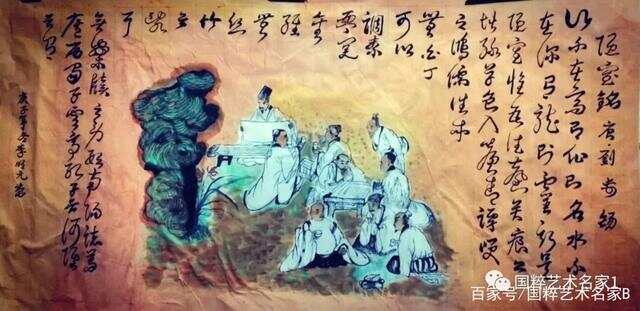 陋室銘 唐 劉禹錫
山不在高有仙则名水不
在深有龍则靈斯是
陋室惟吾德馨苔痕上
堦绿草色入簾青談笑
有鴻儒往来
無白丁
可以
調素
琴閲
金
經
無
丝
竹
之
乱
耳
無案牍之劳形南陽諸葛
廬西蜀子雲亭孔子云何陋
之有
庚子年冬李
国粹艺术名家1
百家号/国粹艺术名家B